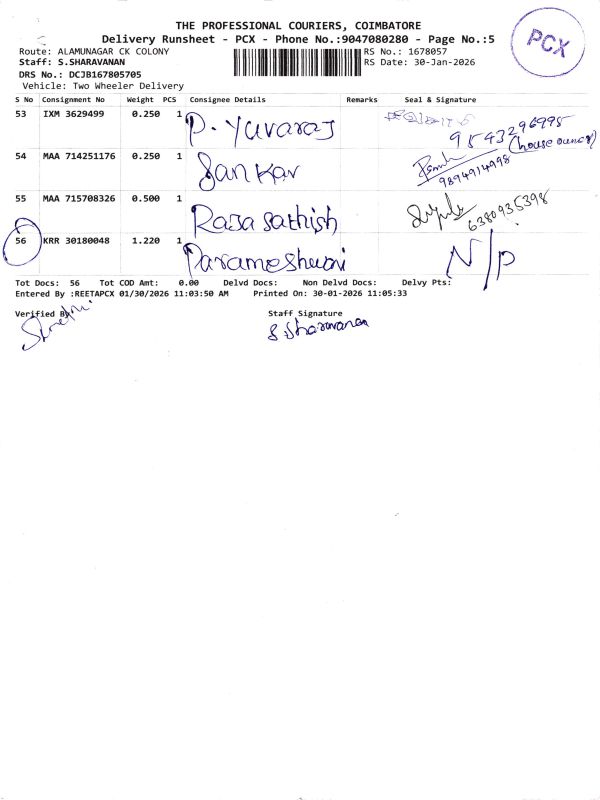 THE PROFESSIONAL COURIERS, COIMBATORE
Delivery Runsheet - PCX - Phone No.:9047080280 - Page No.:5
PCX
Route: ALAMUNAGAR CK COLONY
RS No.: 1678057
Staff: S.SHARAVANAN
RS Date: 30-Jan-2026
DRS No.: DCJB167805705
Vehicle: Two Wheeler Delivery
S No Consignment No Weight PCS Consignee Details Remarks Seal & Signature
53 IXM 3629499 0.250 1 P. Yuvaraj
9543296995
(house owner)
54 MAA 714251176 0.250 1 Sankar
9894914998
55 MAA 715708326 0.500 1 Raja sathish
6380935398
56 KRR 30180048 1.220 1 Parameshwari N/P
Tot Docs: 56 Tot COD Amt: 0.00 Delvd Docs: Non Delvd Docs: Delvy Pts:
Entered By :REETAPCX 01/30/2026 11:03:50 AM Printed On: 30-01-2026 11:05:33
Verified By Staff Signature
S. Sharavanan